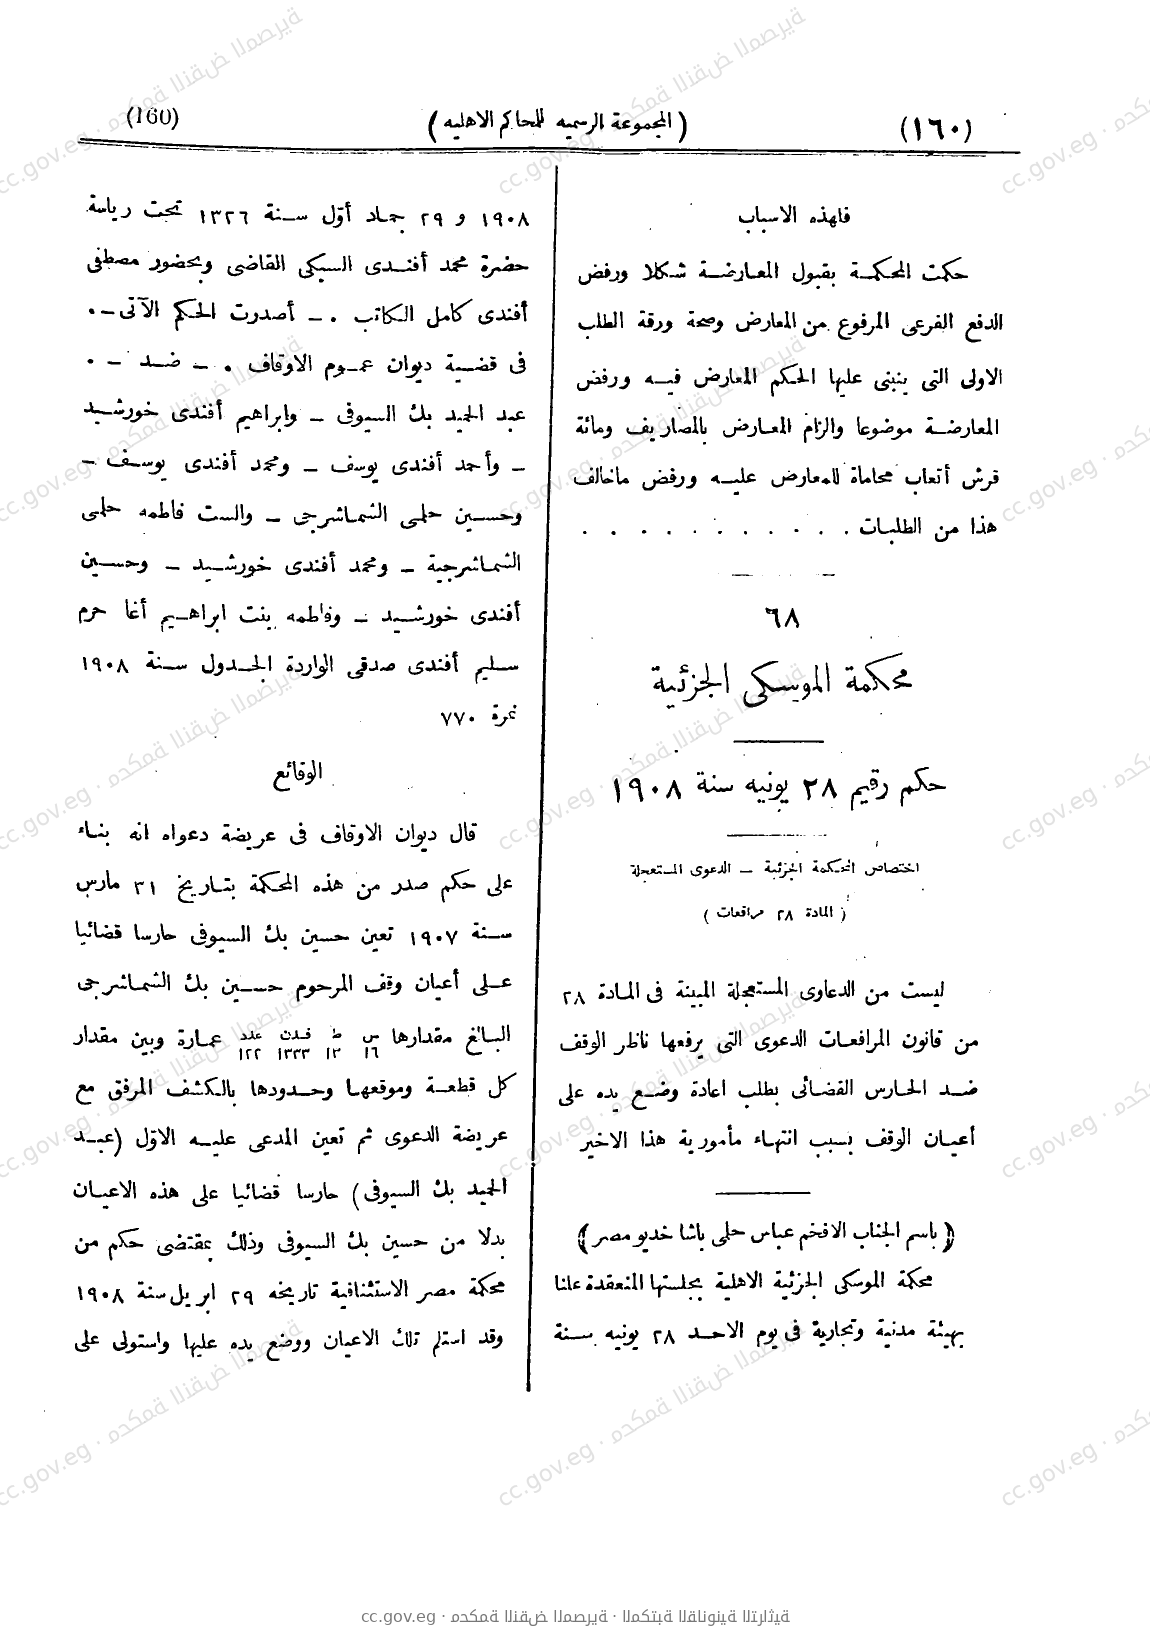 (١٦٠)
(المجموعة الرسميه للمحاكم الاهليه)
(160)
فلهذه الاسباب
حكمت المحكمة بقبول المعارضة شكلا ورفض
الدفع الفرعى المرفوع من المعارض وصحة ورقة الطلب
الاولى التى ينبنى عليها الحكم المعارض فيه ورفض
المعارضة موضوعا والزام المعارض بالمصاريف ومائة
قرش أتعاب محاماة للمعارض عليه ورفض ماخالف
هذا من الطلبات . . . . . . . . . . .
٦٨
محكمة الموسكى الجزئية
حكم رقيم ٢٨ يونيه سنة ١٩٠٨
اختصاص المحكمة الجزئية – الدعوى المستعجلة
( المادة ٢٨ مرافعات )
ليست من الدعاوى المستعجلة المبينة فى المادة ٢٨
من قانون المرافعات الدعوى التى يرفعها ناظر الوقف
ضد الحارس القضائى بطلب اعادة وضع يده على
أعيان الوقف بسبب انتهاء مأمورية هذا الاخير
(باسم الجناب الافخم عباس حلمى باشا خديو مصر)
محكمة الموسكى الجزئية الاهلية بجلستها المنعقدة علنا
بهيئة مدنية وتجارية فى يوم الاحد ٢٨ يونيه سنة
١٩٠٨ و ٢٩ جماد أوّل سنة ١٣٢٦ تحت رياسة
حضرة محمد أفندى السبكى القاضى وبحضور مصطفى
أفندى كامل الكاتب . – أصدرت الحكم الآتى – .
فى قضية ديوان عموم الاوقاف . – ضد – .
عبد الحميد بك السيوفى – وابراهيم أفندى خورشيد
– وأحمد أفندى يوسف – ومحمد أفندى يوسف –
وحسين حلمى الشماشرجى – والست فاطمه حلمى
الشماشرجية – ومحمد أفندى خورشيد – وحسين
أفندى خورشيد – وفاطمه بنت ابراهيم أغا حرم
سليم أفندى صدقى الواردة الجدول سنة ١٩٠٨
نمرة ٧٧٠
الوقائع
قال ديوان الاوقاف فى عريضة دعواه انه بناء
على حكم صدر من هذه المحكمة بتاريخ ٣١ مارس
سنة ١٩٠٧ تعين حسين بك السيوفى حارسا قضائيا
على أعيان وقف المرحوم حسين بك الشماشرجى
البالغ مقدارها س ١٦ ط ١٣ فدن ١٣٣٣ عدد ١٢٢ عمارة وبين مقدار
كل قطعة وموقعها وحدودها بالكشف المرفق مع
عريضة الدعوى ثم تعين المدعى عليه الاوّل (عبد
الحميد بك السيوفى) حارسا قضائيا على هذه الاعيان
بدلا من حسين بك السيوفى وذلك بمقتضى حكم من
محكمة مصر الاستئنافية تاريخه ٢٩ ابريل سنة ١٩٠٨
وقد استلم تلك الاعيان ووضع يده عليها واستولى على
cc.gov.eg · محكمة النقض المصرية · المكتبة القانونية التراثية